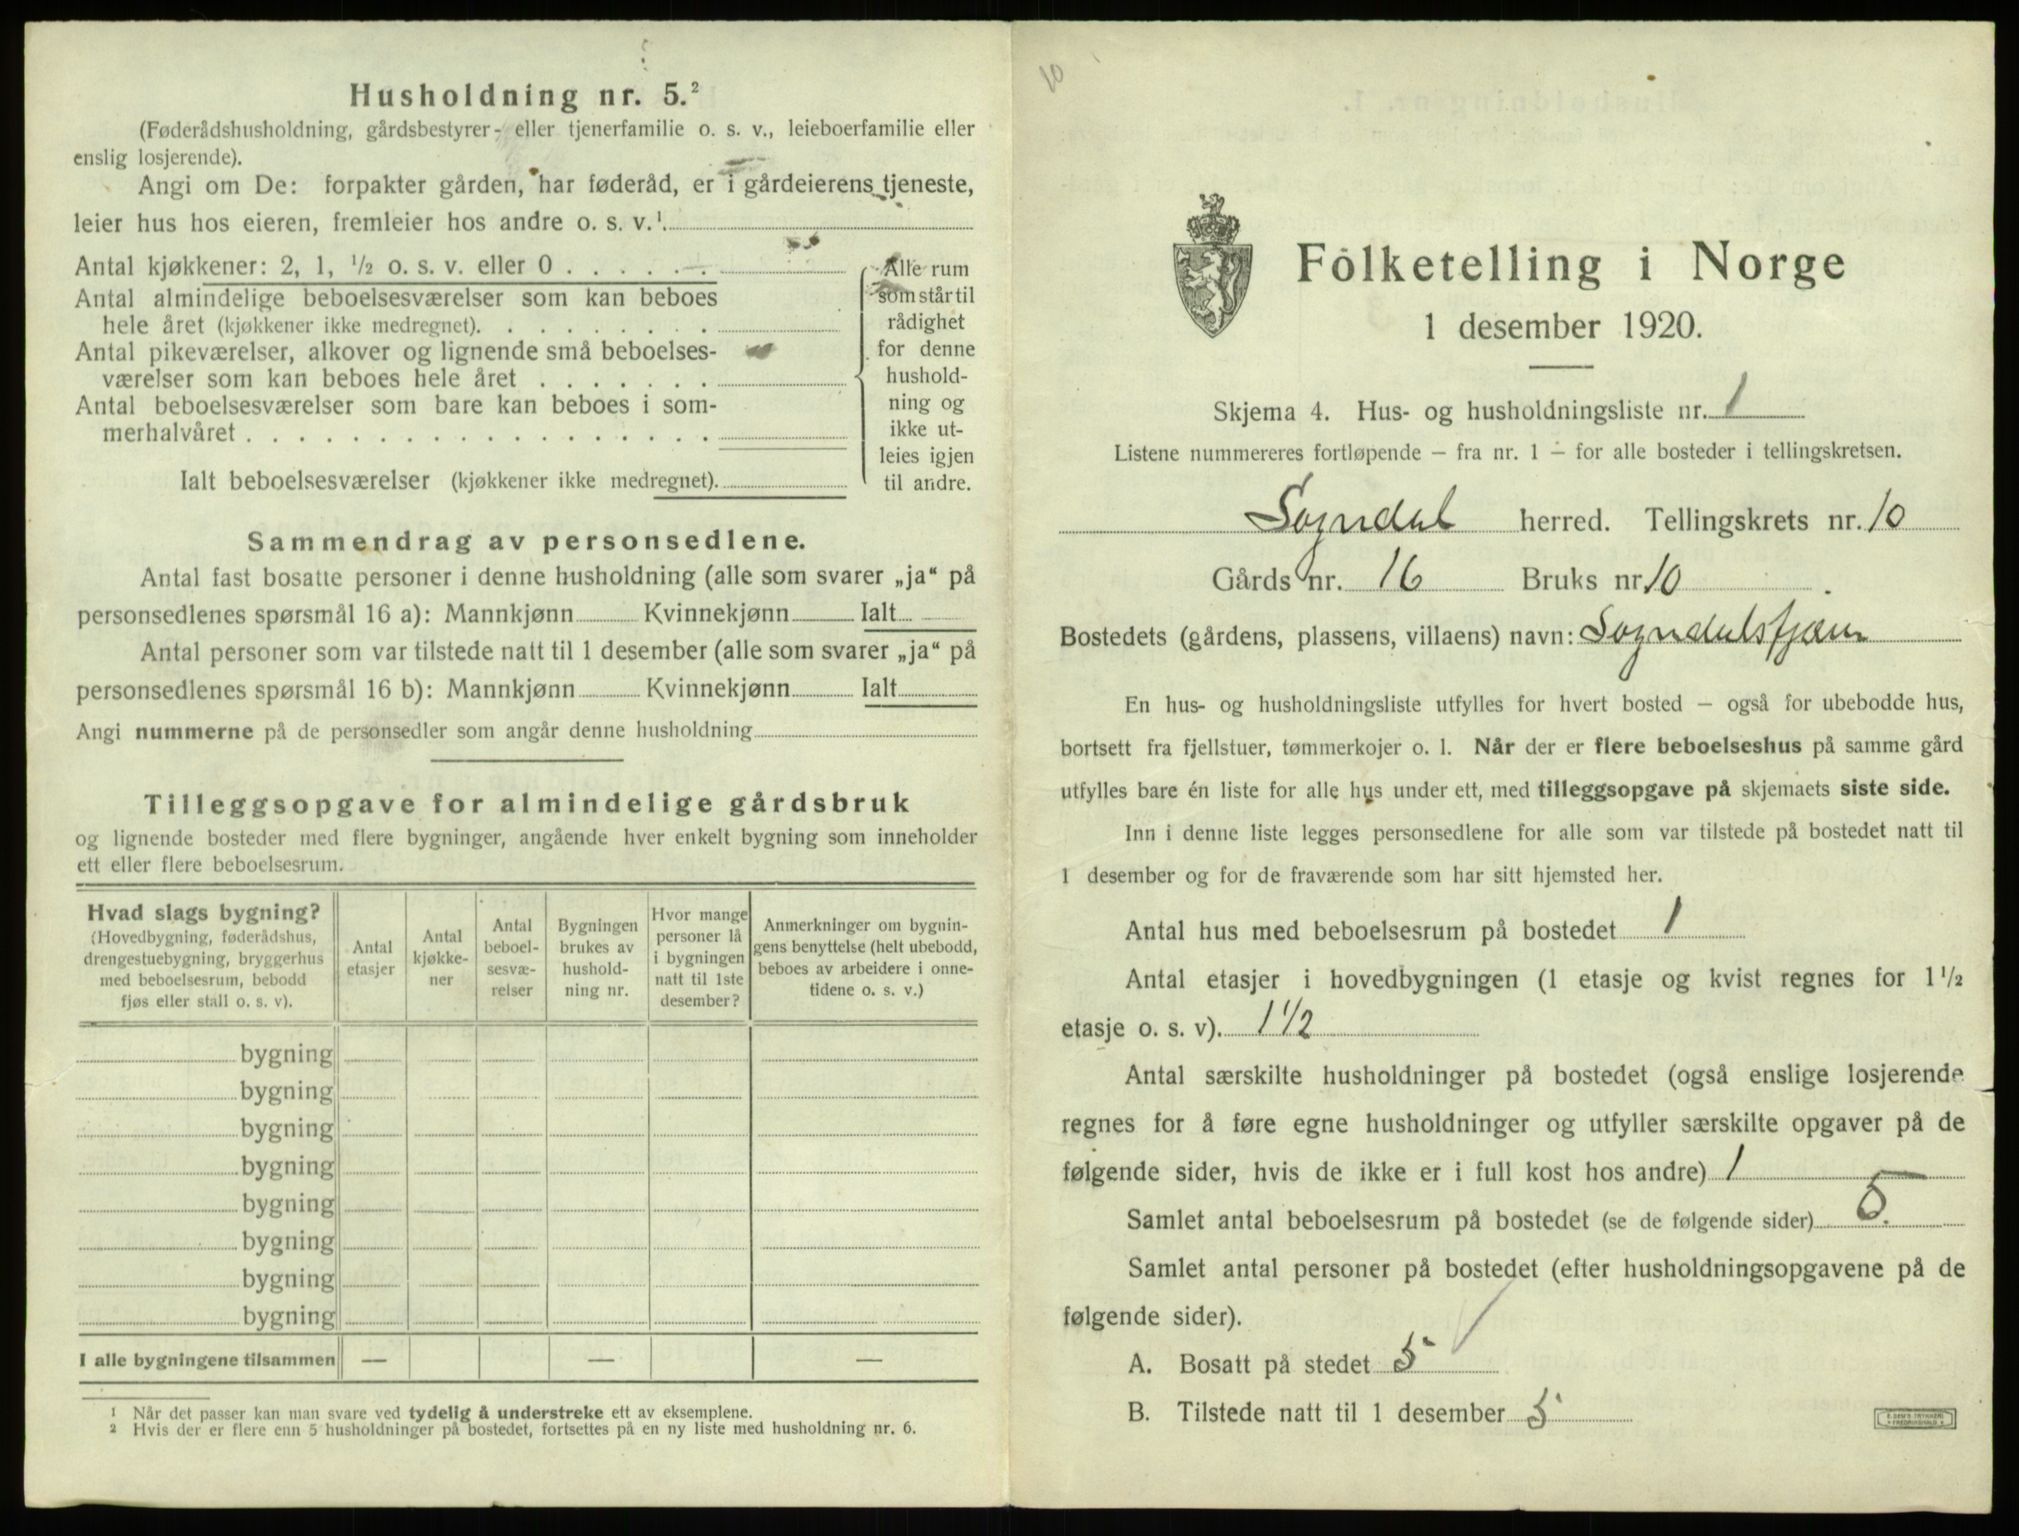 Husholdning nr. 5.²
(Føderådshusholdning, gårdsbestyrer- eller tjenerfamilie o. s. v., leieboerfamilie eller
enslig losjerende).
Angi om De: forpakter gården, har føderåd, er i gårdeierens tjeneste,
leier hus hos eieren, fremleier hos andre o. s. v.¹
Antal kjøkkener: 2, 1, ½ o. s. v. eller 0 . . . . . .
Antal almindelige beboelsesværelser som kan beboes
hele året (kjøkkener ikke medregnet). . . . . . . . .
Antal pikeværelser, alkover og lignende små beboelses-
værelser som kan beboes hele året . . . . . . .
Antal beboelsesværelser som bare kan beboes i som-
merhalvåret . . . . . . . . . . . . . . . . . .
Ialt beboelsesværelser (kjøkkener ikke medregnet).
Alle rum
som står til
rådighet
for denne
hushold-
ning og
ikke ut-
leies igjen
til andre.
Sammendrag av personsedlene.
Antal fast bosatte personer i denne husholdning (alle som svarer „ja“ på
personsedlenes spørsmål 16 a): Mannkjønn Kvinnekjønn Ialt
Antal personer som var tilstede natt til 1 desember (alle som svarer „ja“ på
personsedlenes spørsmål 16 b): Mannkjønn Kvinnekjønn Ialt
Angi nummerne på de personsedler som angår denne husholdning
Tilleggsopgave for almindelige gårdsbruk
og lignende bosteder med flere bygninger, angående hver enkelt bygning som inneholder
ett eller flere beboelsesrum.
Hvad slags bygning?
(Hovedbygning, føderådshus,
drengestuebygning, bryggerhus
med beboelsesrum, bebodd
fjøs eller stall o. s. v).
Antal
etasjer
Antal
kjøkke-
ner
Antal
beboel-
sesvæ-
relser
Bygningen
brukes av
hushold-
ning nr.
Hvor mange
personer lå
i bygningen
natt til 1ste
desember?
Anmerkninger om bygnin-
gens benyttelse (helt ubebodd,
beboes av arbeidere i onne-
tidene o. s. v.)
bygning
bygning
bygning
bygning
bygning
bygning
bygning
bygning
I alle bygningene tilsammen — — —
¹ Når det passer kan man svare ved tydelig å understreke ett av eksemplene.
² Hvis der er flere enn 5 husholdninger på bostedet, fortsettes på en ny liste med husholdning nr. 6.
10
Folketelling i Norge
1 desember 1920.
Skjema 4. Hus- og husholdningsliste nr. 1
Listene nummereres fortløpende – fra nr. 1 – for alle bosteder i tellingskretsen.
Sogndal herred. Tellingskrets nr. 10
Gårds nr. 16 Bruks nr. 10
Bostedets (gårdens, plassens, villaens) navn: Sogndalsfjæren
En hus- og husholdningsliste utfylles for hvert bosted – også for ubebodde hus,
bortsett fra fjellstuer, tømmerkojer o. l. Når der er flere beboelseshus på samme gård
utfylles bare én liste for alle hus under ett, med tilleggsopgave på skjemaets siste side.
Inn i denne liste legges personsedlene for alle som var tilstede på bostedet natt til
1 desember og for de fraværende som har sitt hjemsted her.
Antal hus med beboelsesrum på bostedet 1
Antal etasjer i hovedbygningen (1 etasje og kvist regnes for 1 ½
etasje o. s. v). 1 ½
Antal særskilte husholdninger på bostedet (også enslige losjerende
regnes for å føre egne husholdninger og utfyller særskilte opgaver på de
følgende sider, hvis de ikke er i full kost hos andre) 1
Samlet antal beboelsesrum på bostedet (se de følgende sider) 5.
Samlet antal personer på bostedet (efter husholdningsopgavene på de
følgende sider).
A. Bosatt på stedet 5
B. Tilstede natt til 1 desember 5